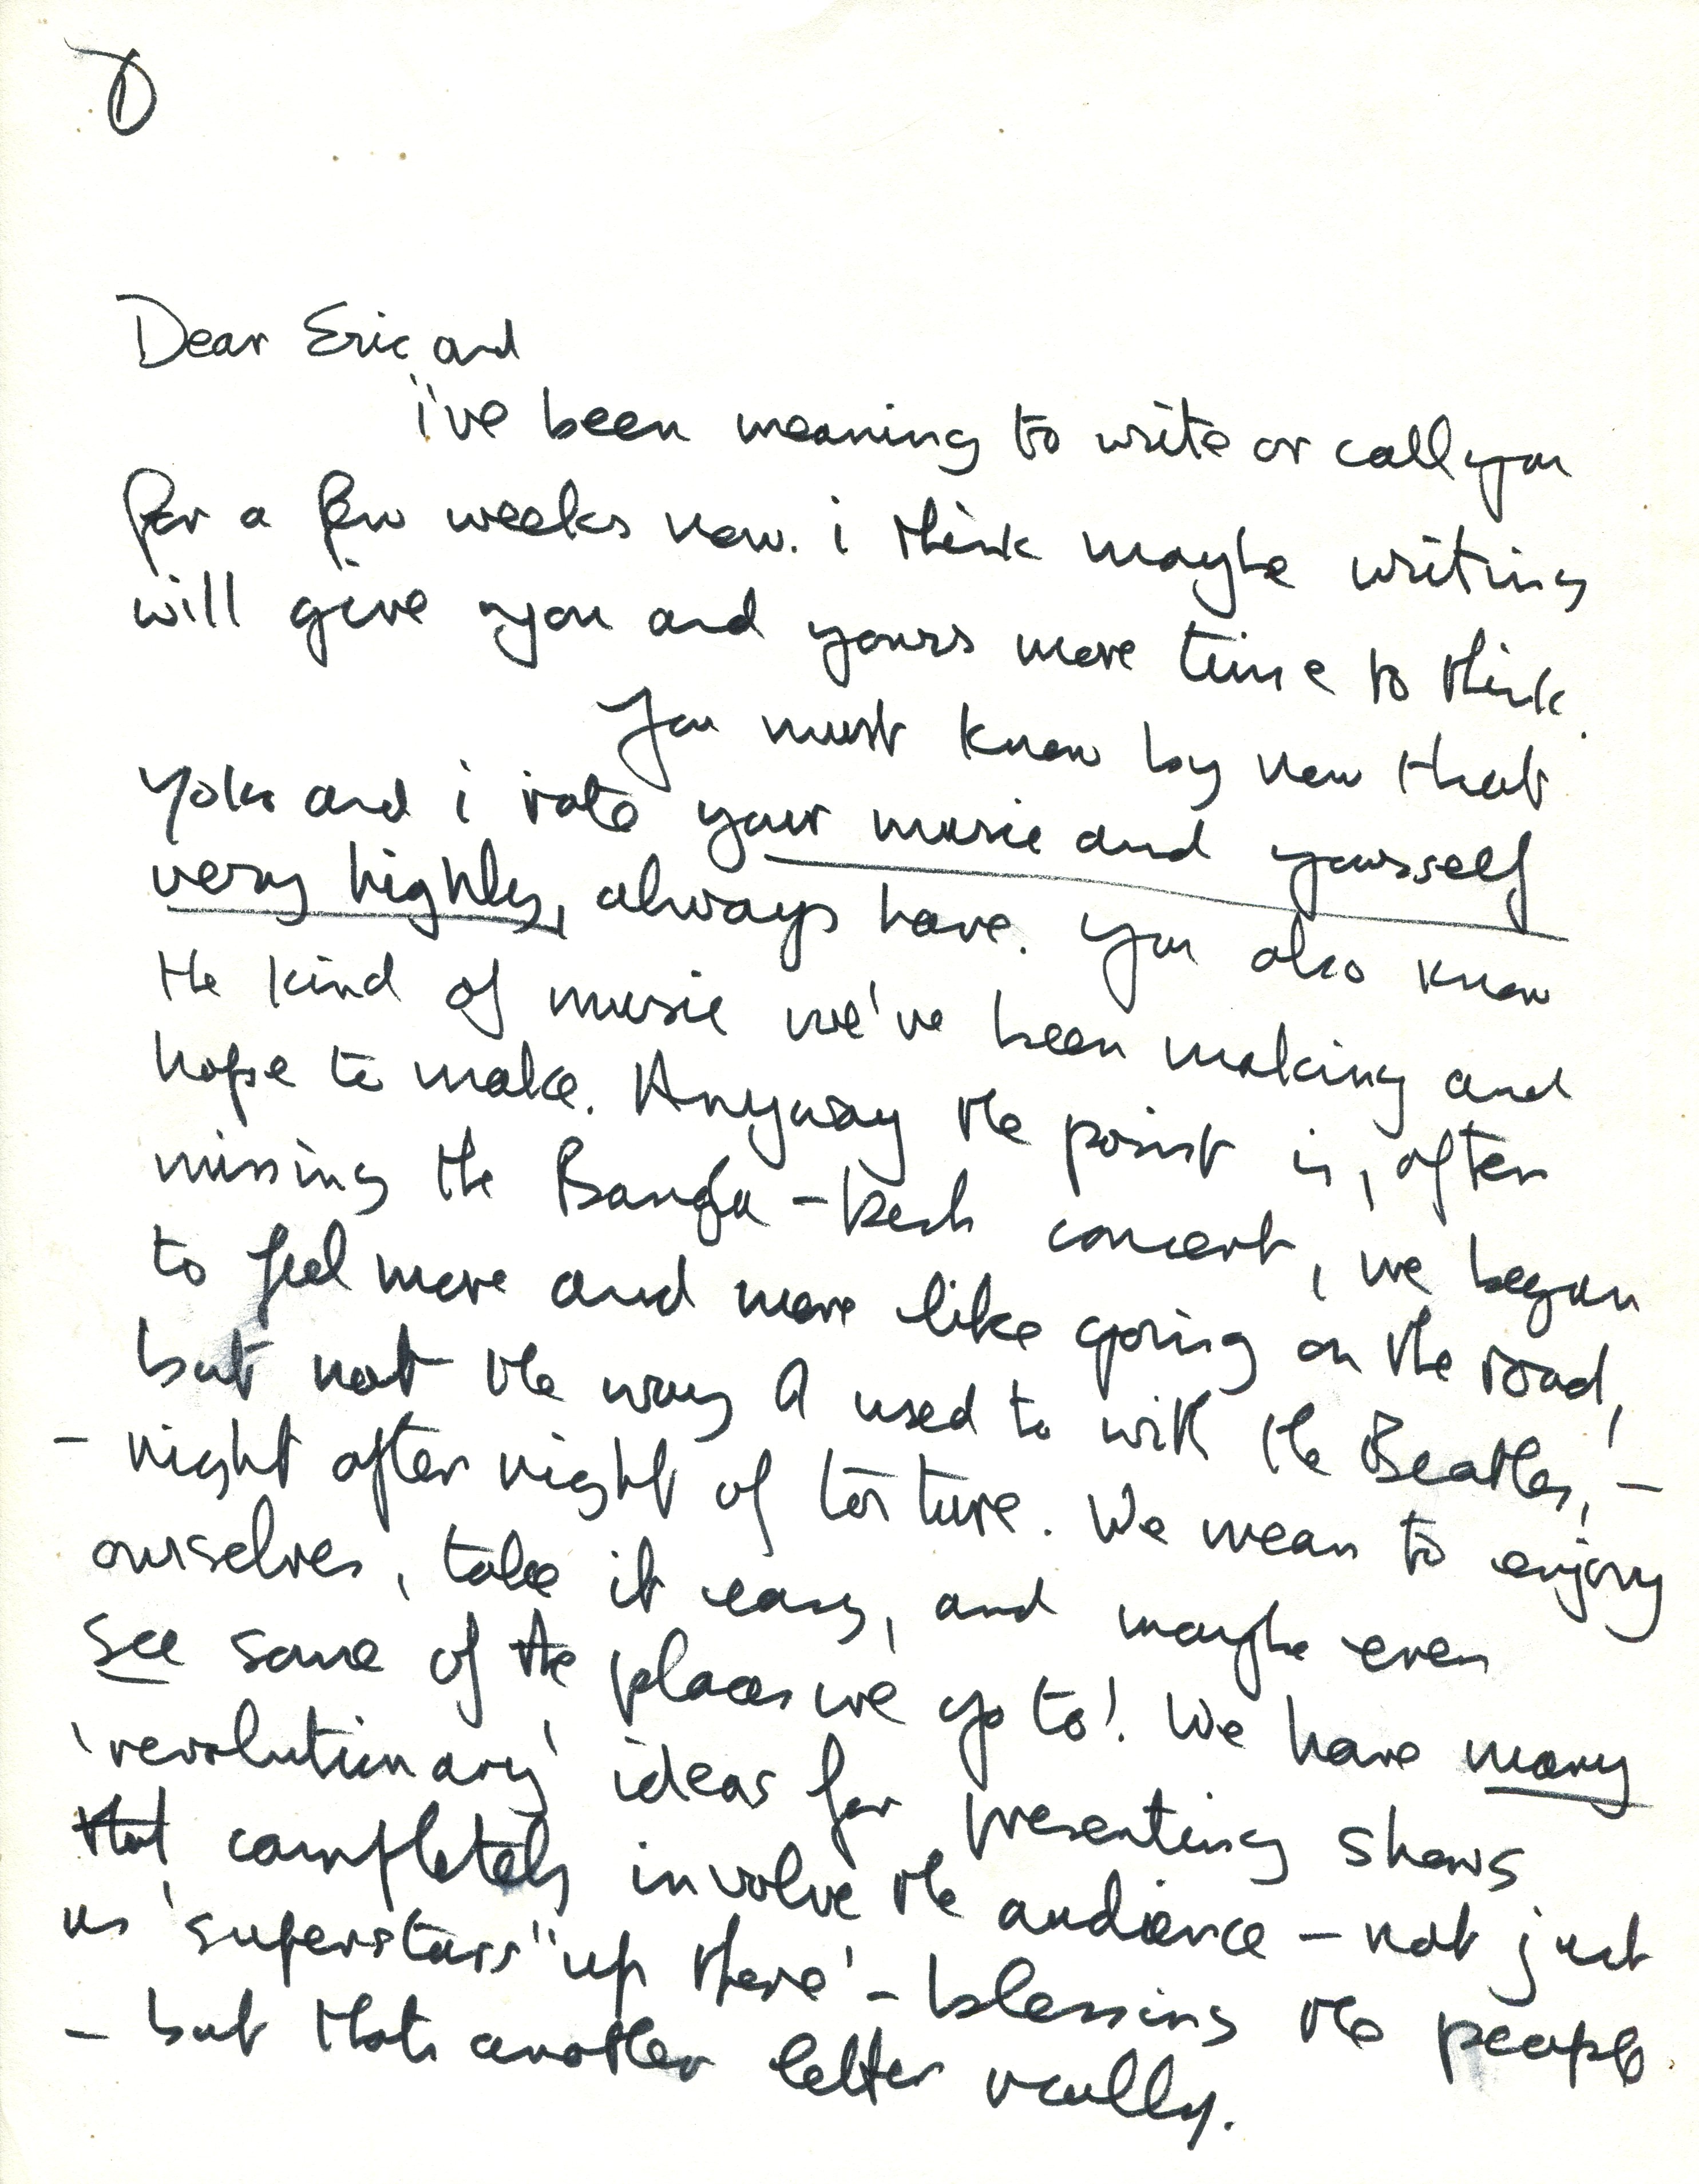 ①
Dear Eric and
i've been meaning to write or call you
for a few weeks now. i think maybe writing
will give you and yours more time to think.
You must know by now that
Yoko and i rate your music and yourself
very highly, always have. You also know
the kind of music we've been making and
hope to make. Anyway the point is, after
missing the Bangla-Desh concert, we began
to feel more and more like going on the road,
but not the way I used to with the Beatles, -
- night after night of torture. We mean to enjoy
ourselves, take it easy, and maybe even
see some of the places we go to! We have many
'revolutionary' ideas for presenting shows
that completely involve the audience - not just
us 'superstars" up there' - blessing the people
- but thats another letter really.